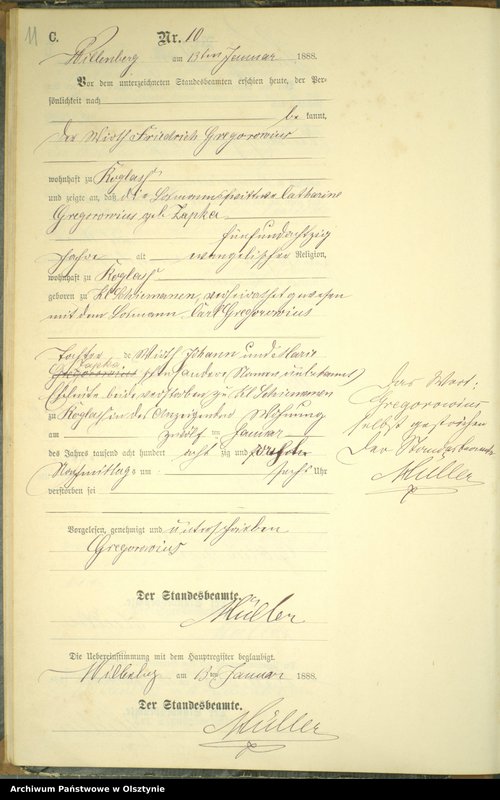 11
C.
Nr. 10
Willenberg am 13ten Januar 1888.
Vor dem unterzeichneten Standesbeamten erschien heute, der Per-
sönlichkeit nach
be kannt,
der Wirth Friedrich Gregorowius
wohnhaft zu Roglash
und zeigte an, daß die Losmannswittwe Catharine
Gregorowius geb. Zapka
fünfundachtzig
Jahre alt evangelischer Religion,
wohnhaft zu Roglash
geboren zu Kl Schiemanen, verheirathet gewesen
mit dem Losmann Carl Gregorowius
Tochter de Wirth Johann und Marie
Zapka
Gregorowius
Eheleute beide verstorben zu Kl Schiemanen
zu Roglash in des Anzeigenden Wohnung
am zwölf ten Januar
des Jahres tausend acht hundert acht zig und acht
Nachmittags um sechs Uhr
verstorben sei
Vorgelesen, genehmigt und unterschrieben
Gregorowius
Der Standesbeamte.
Müller
Die Uebereinstimmung mit dem Hauptregister beglaubigt.
Willenberg am 13ten Januar 1888.
Der Standesbeamte.
Müller
Das Wort:
Gregorowius
selbst gestrichen
Der Standesbeamte
Müller
Archiwum Państwowe w Olsztynie